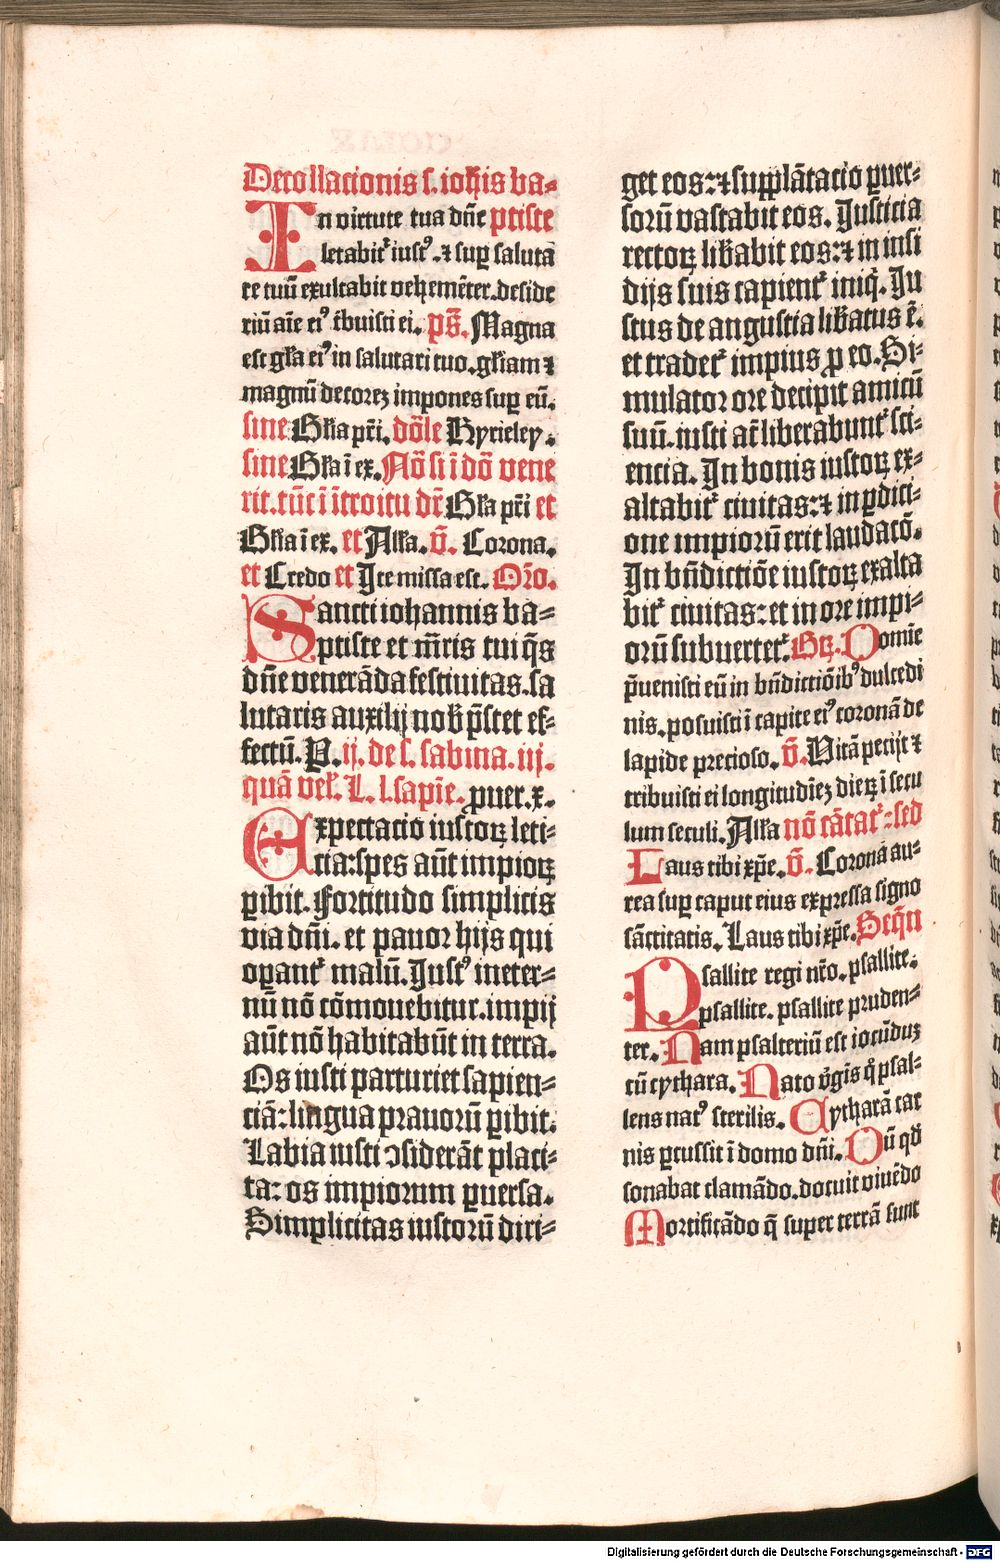 Decollacionis s. ioh̄is ba⸗
In virtute tua dn̄e ptiste
letabit᷑ iust⁹ .⁊ sup̱ salutā
re tuū exultabit vehemēter.deside
riū aīe ei⁹ t̄buisti ei. pš. Magna
est gl̄ia ei⁹ in salutari tuo.gl̄iam ⁊
magnū decoreꝫ impones sup̱ eū.
sine Gl̄ia pr̄i. dōīe Kyrieley.
sine Gl̄ia ī ex. Nō si ī dō vene
rit.tūc ī ītroitu dr̄ Gl̄ia pr̄i et
Gl̄ia ī ex. et All̄a. v̄. Corona.
et Credo et Ite missa est. Or̄o.
Sancti iohannis ba⸗
ptiste et m̄ris tui q̄s
dn̄e venerāda festiuitas.sa
lutaris auxilij nob̄ p̄stet ef⸗
fectū. P. ij. de s. sabina. iij.
quā vel̄. L. l.sapīe. puer.x.
Expectacio iustoꝝ leti⸗
cia:spes aūt impioꝝ
ꝑibit. Fortitudo simplicis
via dn̄i. et pauor hijs qui
oꝑant᷑ malū. Iust⁹ ineter⸗
nū nō cōmouebitur.impij
aūt nō habitabūt in terra.
Os iusti parturiet sapien⸗
ciā:lingua prauorū ꝑibit.
Labia iusti ↄsiderāt placi⸗
ta: os impiorum ꝑuersa.
Simplicitas iustorū diri⸗
get eos:⁊ supplātacio ꝑuer⸗
sorū vastabit eos. Iusticia
rectoꝝ lib̄abit eos:⁊ in insi
dijs suis capient᷑ iniq̄. Iu
stus de angustia lib̄atus ē.
et tradet᷑ impius ꝓ eo. Si⸗
mulator ore decipit amicū
suū. iusti at̄ liberabunt᷑ sci⸗
encia. In bonis iustoꝝ ex⸗
altabit᷑ ciuitas:⁊ in ꝑdici⸗
one impiorū erit laudacō.
In bn̄dictiōe iustoꝝ exalta
bit᷑ ciuitas: et in ore impi⸗
orū subuertet᷑. Gꝝ. Domīe
p̄uenisti eū in bn̄dictiōib⁹ dulcedi
nis. posuisti ī capite ei⁹ coronā de
lapide precioso. v̄. Vitā petijt ⁊
tribuisti ei longitudīeꝫ dieꝝ ī secu
lum seculi. All̄a nō cātat᷑ : sed
Laus tibi xp̄e. v̄. Corona au⸗
rea sup̱ caput eius expressa signo
sāctitatis. Laus tibi xp̄e. Seq̄n
Psallite regi nr̄o. psallite.
psallite. psallite pruden⸗
ter. Nam psalteriū est iocūduꝫ
cū cythara. Nato v̄gīs q̄ psal⸗
lens nat⁹ sterilis. Cytharā car
nis ꝑcussit ī domo dn̄i. Dū qd̄
sonabat clamādo.docuit viuēdo
Mortificādo q̄ super terrā sunt
Digitalisierung gefördert durch die Deutsche Forschungsgemeinschaft - DFG